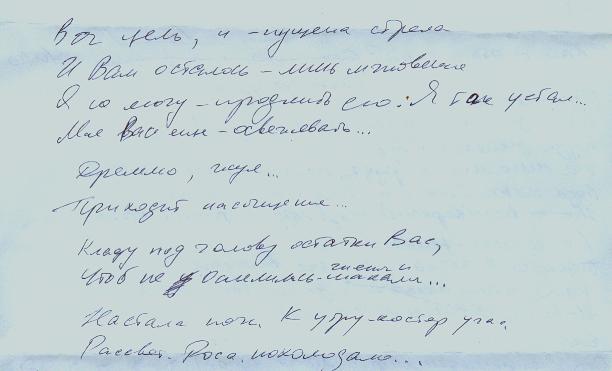 Вот цель, и - пущена стрела
И Вам осталось - лишь мгновение
Я не могу - продлить его: Я так устал...
Мне Вас еще - освежевать...
Дремлю, жуя...
Приходит насыщение...
Кладу под голову остатки Вас,
Чтоб не осмелились - гиены и шакалы...
Настала ночь. К утру - костер угас.
Рассвет. Роса. похолодало...